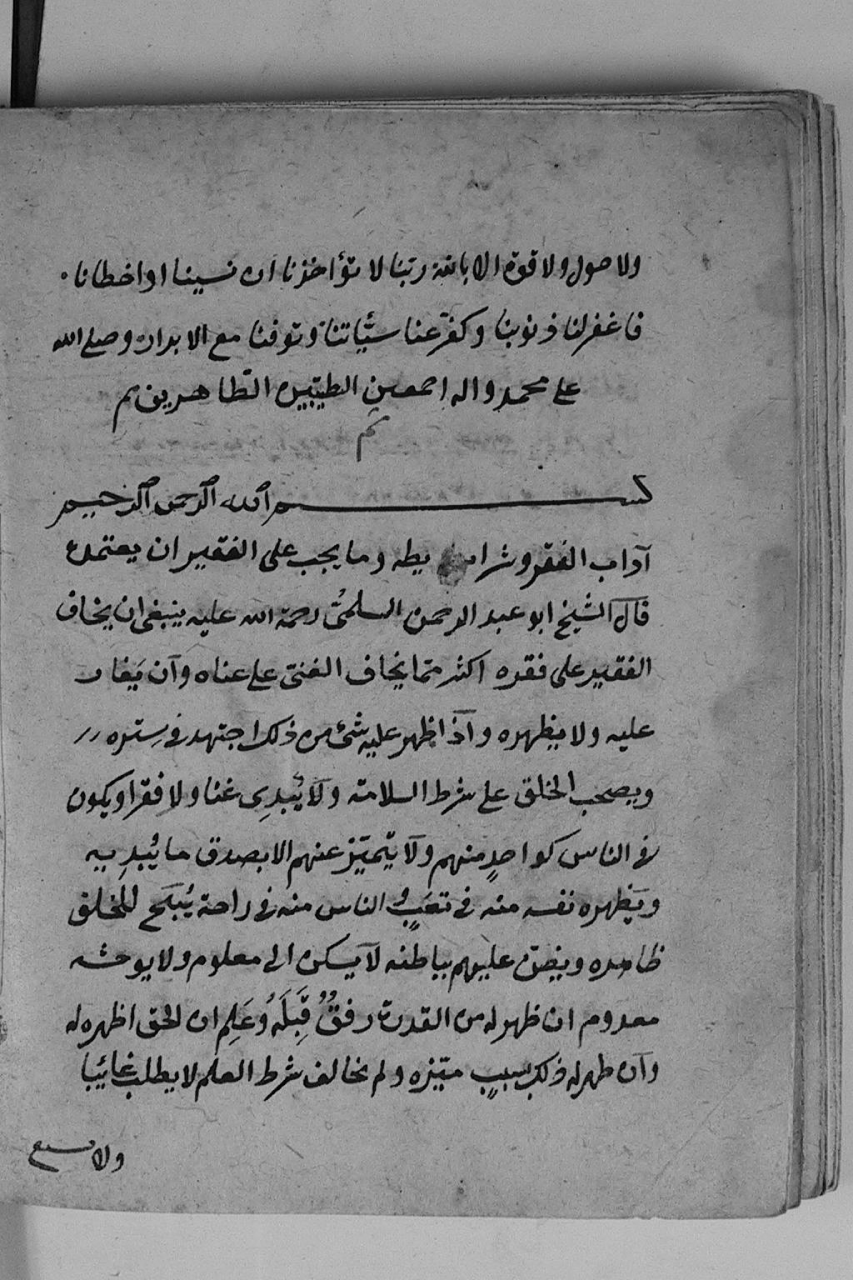 ولا حول ولا قوة الا بالله ربنا لا تؤاخذنا ان نسينا او اخطانا
فاغفر لنا ذنوبنا وكفّر عنا سيّئاتنا وتوفنا مع الابرار وصلى الله
على محمد واله اجمعين الطيّبين الطّاهرين تم
تم
بسم الله الرحمن الرحيم
آداب الفقر وشرايطه وما يجب على الفقير ان يعتمده
قال الشيخ ابو عبد الرحمن السلمىّ رحمة الله عليه ينبغى ان يخاف
الفقير على فقره اكثر ممّا يخاف الغنىّ على غناه وآن يَغار
عليه ولا يظهره وآذا ظهر عليه شئ من ذلك اجتهد فى سِتره
ويصحب الخلق على شرط السلامة ولا يُبدِى غنا ولا فقرا ويكون
فى الناس كواحدٍ منهم ولا يتميّز عنهم الا بصدق ما يُبدِيه
ويظهره نفسه منه فى تعَبٍ والناس منه فى راحة يُبَح للخلق
ظاهره ويضنّ عليهم بباطنه لا يسكن الى معلوم ولا يوحشه
معدوم ان ظهر له من القدرة رفقٌ قَبِلَهُ وعَلِم ان الحق اظهره له
وآن ظهر له ذلك بسببٍ ميّزه ولم يخالف شرط العلم لا يطلب غائبا
ولا